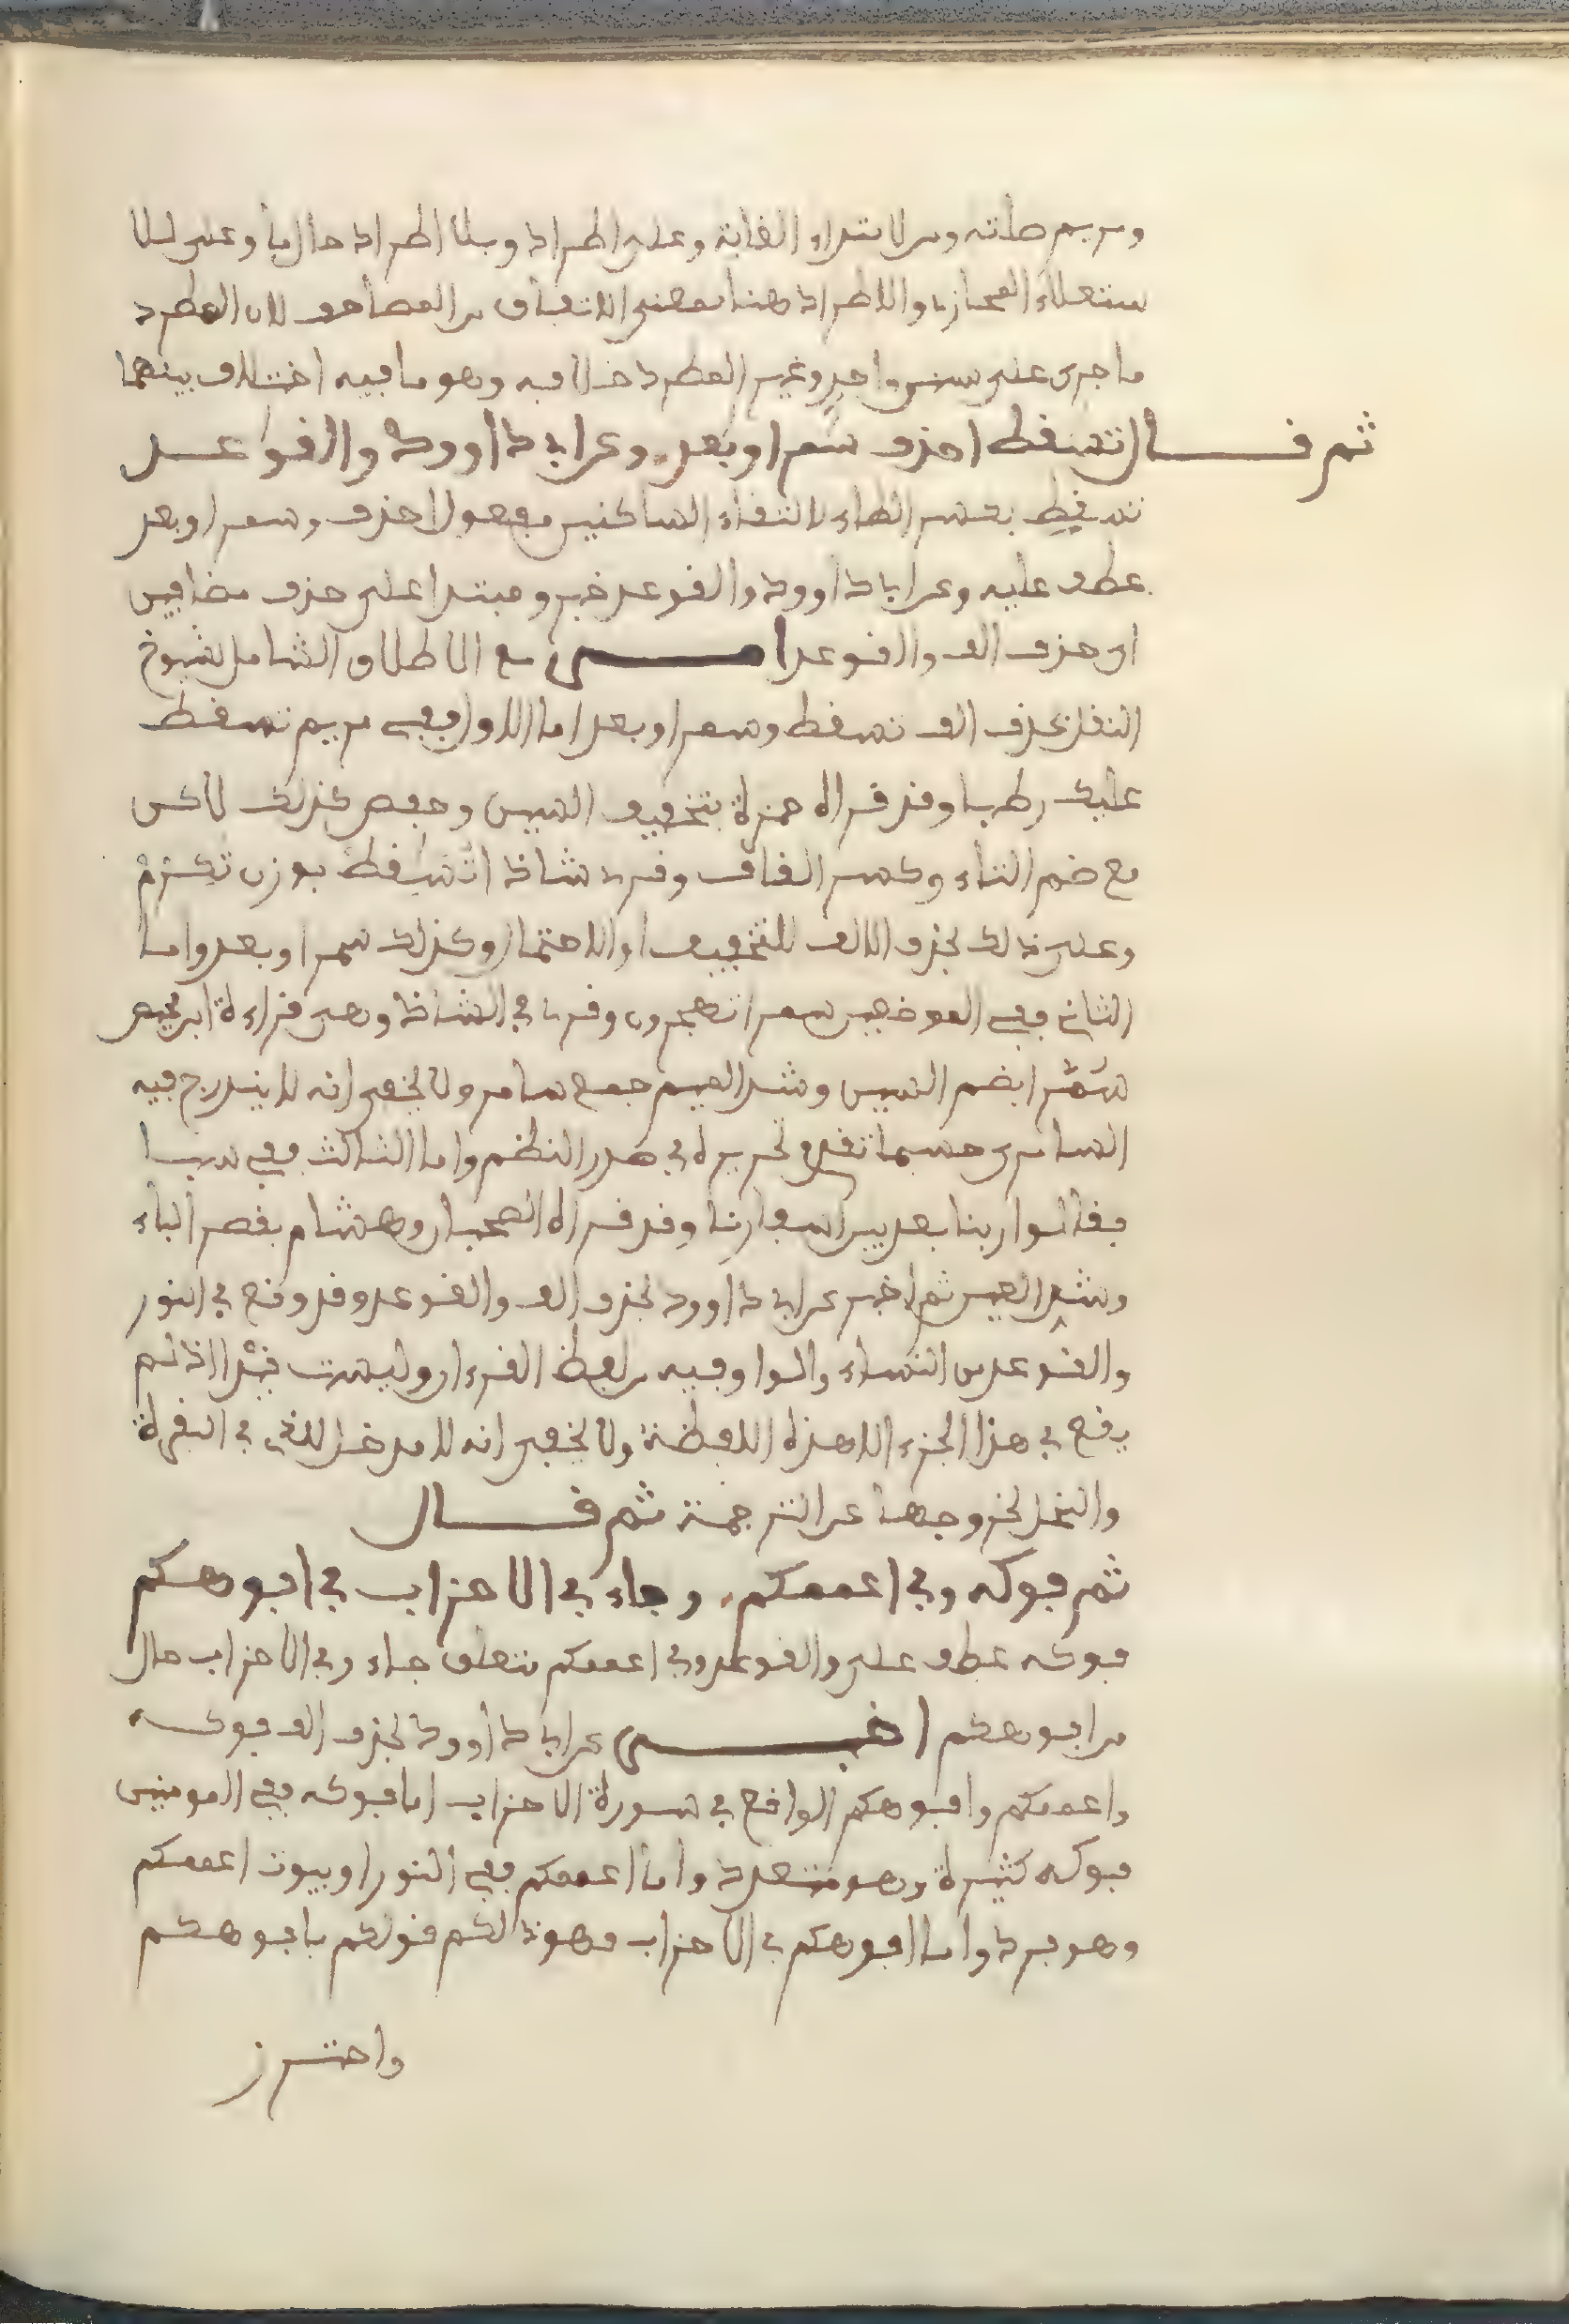 ومريم صلته ومن لابتداء الغاية وعلى اطراد وبلا اطراد حال منا وعلى للا
ستعلاء المجازي والاطراد هنا بمعنى الاتفاق من المصاحف لان المطرد
ما جرى على سنن واحد وغير المطرد خلافه وهو ما فيه اختلاف بينهما
ثم قال تسقط احذف سمرا وبعد وعن ابي داوود والقوعد
تسقط بكسر الطاء لالتقاء الساكنين مفعول احذف وسمرا وبعد
عطف عليه وعن ابي داوود والقوعد خبر ومبتدا على حذف مضافين
اي حذف الف والقوعد امر مع الاطلاق الشامل لشيوخ
النقل بحذف الف تسقط وسمرا وبعد اما الاول ففي مريم تسقط
عليك رطبا وقد قراه حمزة بتخفيف السين وحفص كذلك لاكن
مع ضم التاء وكسر القاف وقرئ شاذا تسقط بوزن تكرم
وعلى ذلك بحذف الالف للتخفيف او الاحتمال وكذلك سمرا وبعد واما
الثاني ففي المومنين سمرا تهجرون وقرئ في الشاذ وهي قراءة ابن محيصن
سمرا بضم السين وشد الميم جمع سامر ولا يخفى انه لا يندرج فيه
السامري حسبما تقدم تحريره في صدر النظم واما الثالث ففي سبا
فقالوا ربنا بعد بين اسفارنا وقد قراه الصحبان وهشام بقصر الباء
وشد العين ثم اخبر عن ابي داوود بحذف الف والقوعد وقد وقع في النور
والقوعد من النساء والواو فيه من لفظ القرءان وليست قيدا اذ لم
يقع في هذا الجزء الا هذه اللفظة ولا يخفى انه لا مدخل للذي في البقرة
والنحل لخروجهما عن الترجمة ثم قال
ثم فوكه وفي اعممكم وجاء في الاحزاب في افوهكم
فوكه عطف على والقوعد وفي اعممكم متعلق جاء وفي الاحزاب حال
من افوهكم اخبر عن ابي داوود بحذف الف فوكه
واعممكم وافوهكم الواقع في سورة الاحزاب اما فوكه ففي المومنين
فوكه كثيرة وهو متعدد واما اعممكم ففي النور او بيوت اعممكم
وهو فرد واما افوهكم في الاحزاب فهو ذلكم قولكم بافوهكم
واحترز